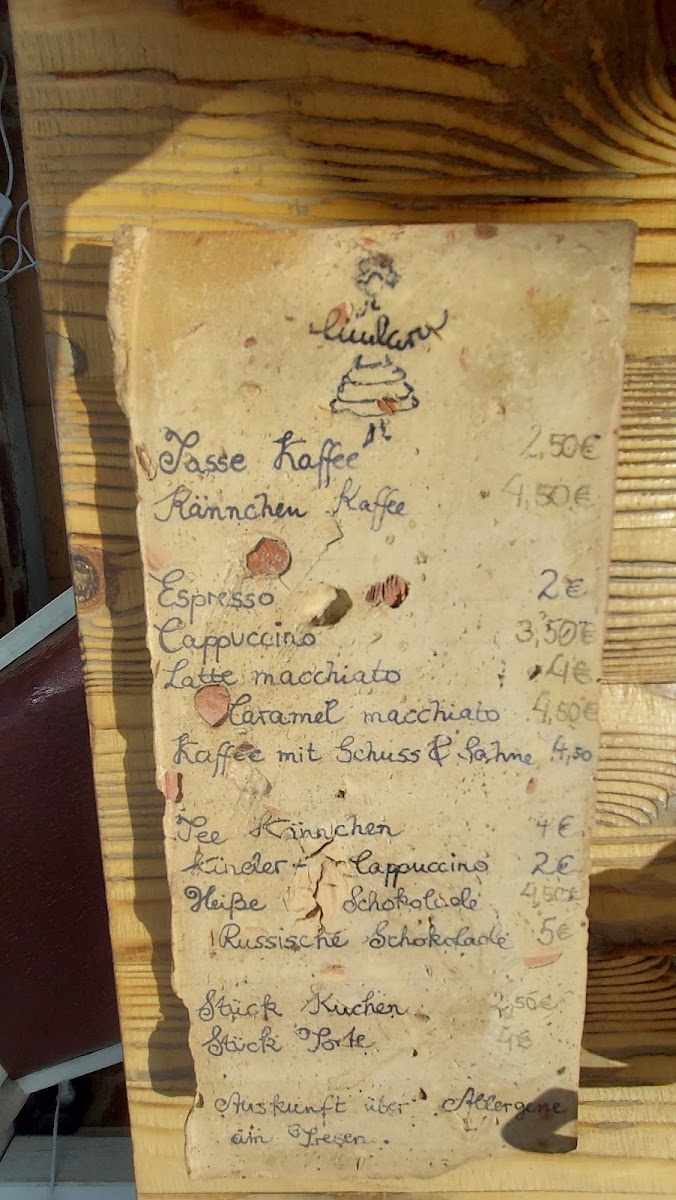 Tasse Kaffee 2,50€
Kännchen Kaffee 4,50€
Espresso 2€
Cappuccino 3,50€
Latte macchiato 4€
Caramel macchiato 4,50€
Kaffee mit Schuss & Sahne 4,50
Tee Kännchen 4€
Kinder- Cappuccino 2€
Heiße Schokolade 4,50€
Russische Schokolade 5€
Stück Kuchen
Stück Torte 4€
Auskunft über Allergene
am Tresen.